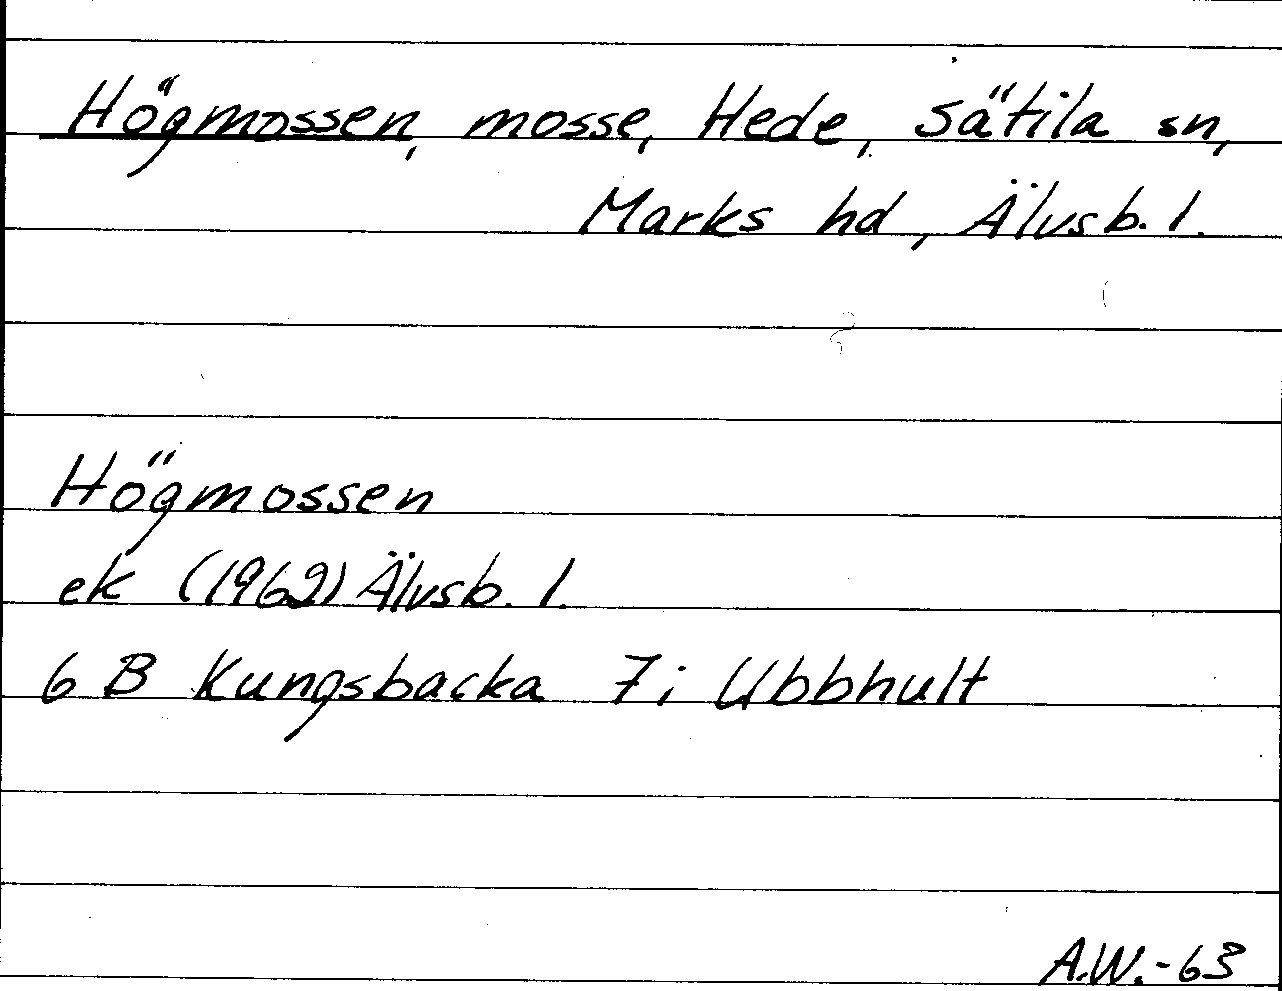 Högmossen, mosse, Hede, Sätila sn,
Marks hd, Älvsb. l.
Högmossen
ek (1962) Älvsb. l.
6 B Kungsbacka 7i Ubbhult
A.W.-63